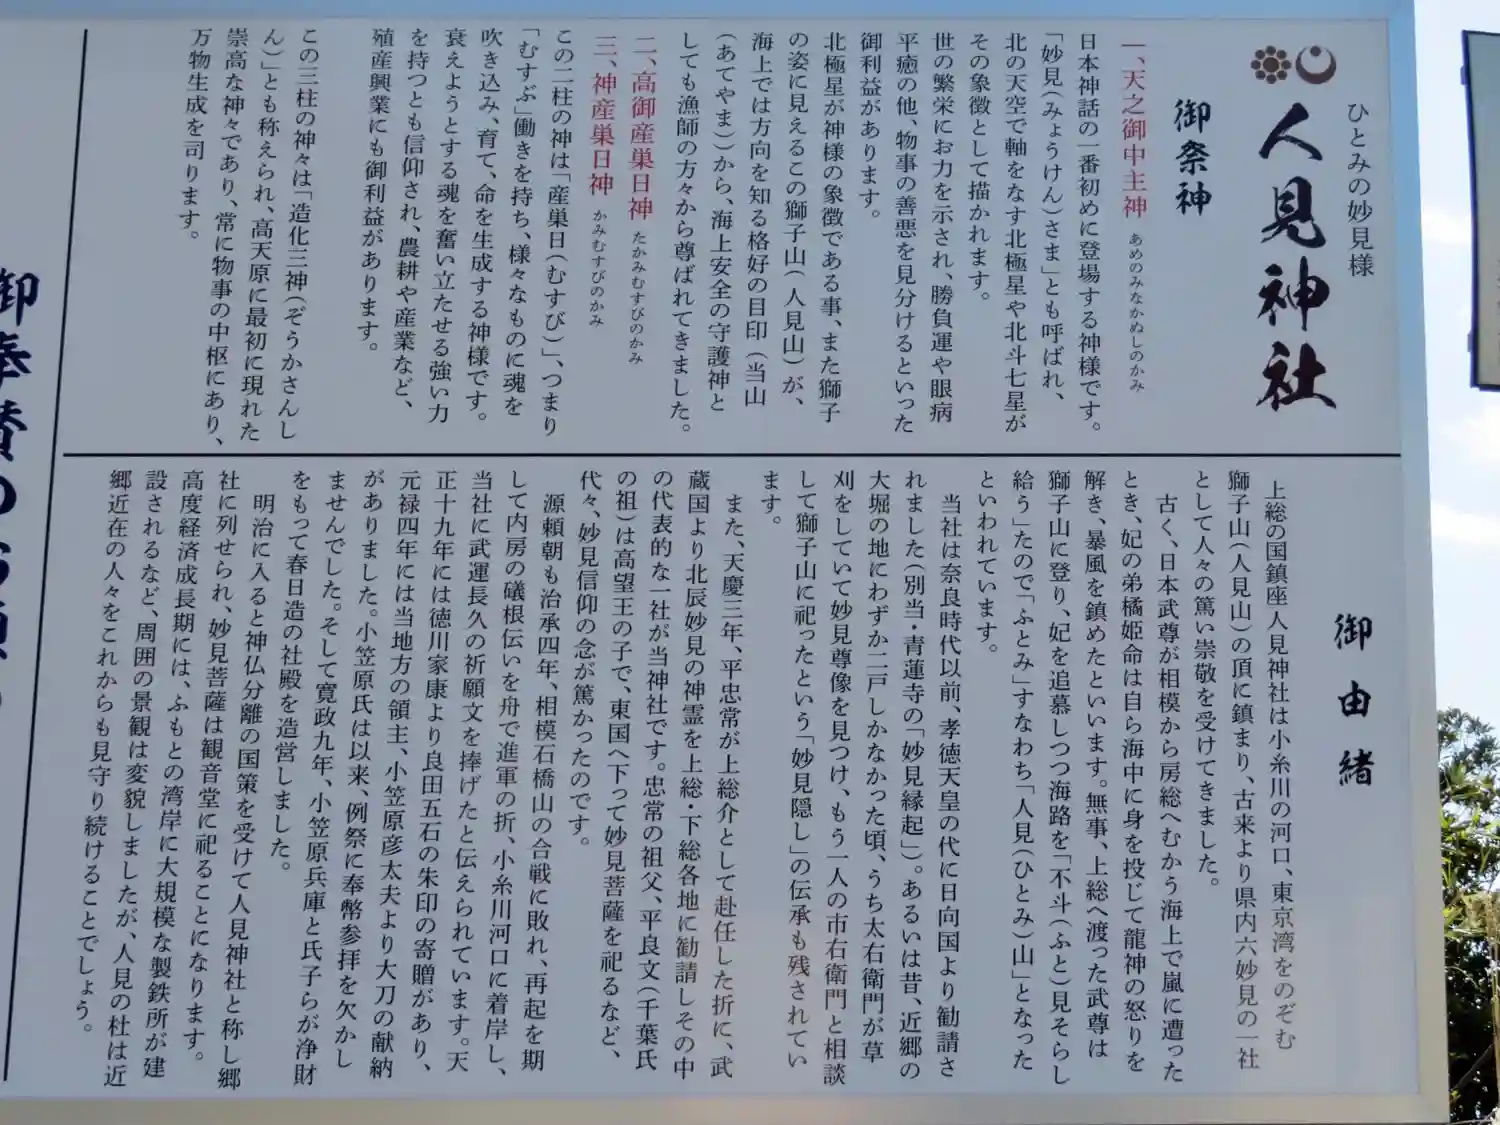 ひとみの妙見様
人見神社
御祭神
一、天之御中主神 あめのみなかぬしのかみ
日本神話の一番初めに登場する神様です。
「妙見(みょうけん)さま」とも呼ばれ、
北の天空で軸をなす北極星や北斗七星が
その象徴として描かれます。
世の繁栄にお力を示され、勝負運や眼病
平癒の他、物事の善悪を見分けるといった
御利益があります。
北極星が神様の象徴である事、また獅子
の姿に見えるこの獅子山(人見山)が、
海上では方向を知る格好の目印(当山
(あてやま))から、海上安全の守護神と
しても漁師の方々から尊ばれてきました。
二、高御産巣日神 たかみむすびのかみ
三、神産巣日神 かみむすびのかみ
この二柱の神は「産巣日(むすび)」、つまり
「むすぶ」働きを持ち、様々なものに魂を
吹き込み、育て、命を生成する神様です。
衰えようとする魂を奮い立たせる強い力
を持つとも信仰され、農耕や産業など、
殖産興業にも御利益があります。
この三柱の神々は「造化三神(ぞうかさんし
ん)」とも称えられ、高天原に最初に現れた
崇高な神々であり、常に物事の中枢にあり、
万物生成を司ります。
御由緒
上総の国鎮座人見神社は小糸川の河口、東京湾をのぞむ
獅子山(人見山)の頂に鎮まり、古来より県内六妙見の一社
として人々の篤い崇敬を受けてきました。
古く、日本武尊が相模から房総へむかう海上で嵐に遭った
とき、妃の弟橘姫命は自ら海中に身を投じて龍神の怒りを
解き、暴風を鎮めたといいます。無事、上総へ渡った武尊は
獅子山に登り、妃を追慕しつつ海路を「不斗(ふと)見そらし
給う」たので「ふとみ」すなわち「人見(ひとみ)山」となった
といわれています。
当社は奈良時代以前、孝徳天皇の代に日向国より勧請さ
れました(別当・青蓮寺の「妙見縁起」)。あるいは昔、近郷の
大堀の地にわずか二戸しかなかった頃、うち太右衛門が草
刈をしていて妙見尊像を見つけ、もう一人の市右衛門と相談
して獅子山に祀ったという「妙見隠し」の伝承も残されてい
ます。
また、天慶三年、平忠常が上総介として赴任した折に、武
蔵国より北辰妙見の神霊を上総・下総各地に勧請しその中
の代表的な一社が当神社です。忠常の祖父、平良文(千葉氏
の祖)は高望王の子で、東国へ下って妙見菩薩を祀るなど、
代々、妙見信仰の念が篤かったのです。
源頼朝も治承四年、相模石橋山の合戦に敗れ、再起を期
して内房の礒根伝いを舟で進軍の折、小糸川河口に着岸し、
当社に武運長久の祈願文を捧げたと伝えられています。天
正十九年には徳川家康より良田五石の朱印の寄贈があり、
元禄四年には当地方の領主、小笠原彦太夫より大刀の献納
がありました。小笠原氏は以来、例祭に奉幣参拝を欠かし
ませんでした。そして寛政九年、小笠原兵庫と氏子らが浄財
をもって春日造の社殿を造営しました。
明治に入ると神仏分離の国策を受けて人見神社と称し郷
社に列せられ、妙見菩薩は観音堂に祀ることになります。
高度経済成長期には、ふもとの湾岸に大規模な製鉄所が建
設されるなど、周囲の景観は変貌しましたが、人見の杜は近
郷近在の人々をこれからも見守り続けることでしょう。